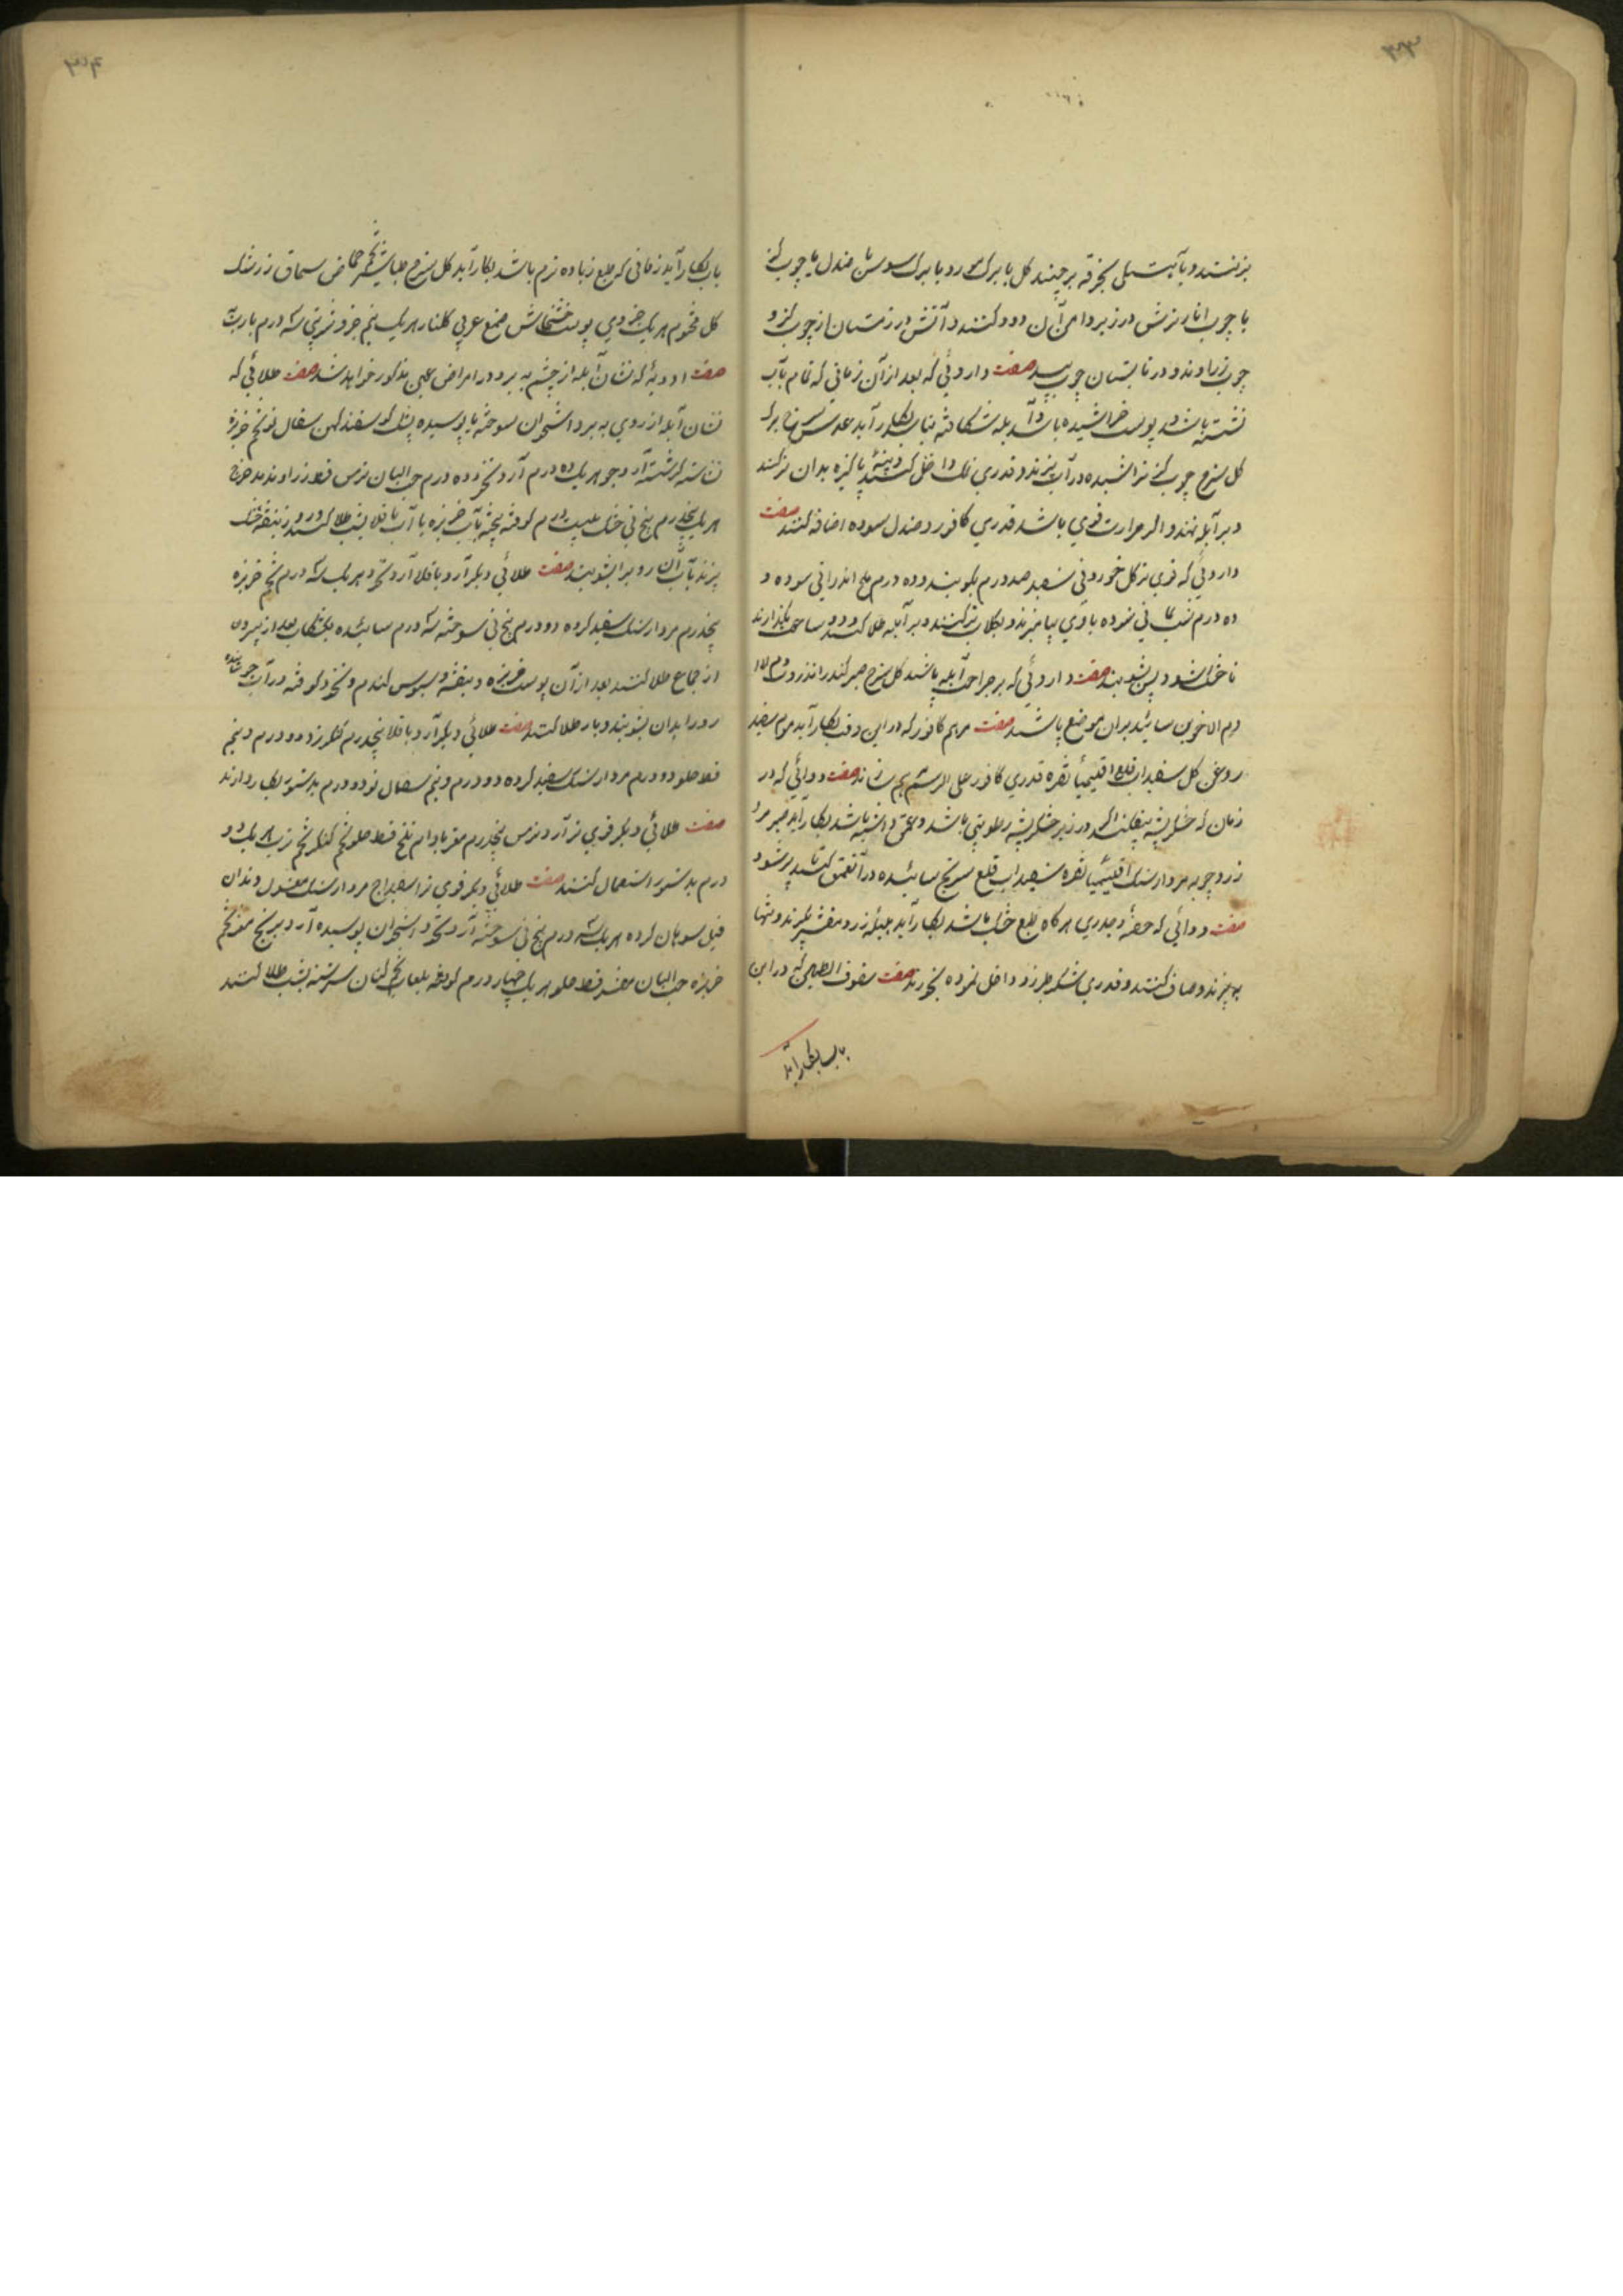 بزنند و بآهستگی بخرقه برچینند کل یا برک مورد یا برک سوسن یا صندل یا چوب کز
یا چوب انار ترش در زیر دامن آن دود کنند و آتش در زمستان از چوب کز و
چوب زراوند و در تابستان چوب بید صفت داروئی که بعد از آن زمانی که تمام بآب
نشسته باشد و پوست خراشیده باشد و آبله شکافته بکار آید عدس سرخ برک
کل سرخ چوب کز تراشیده در آب بپزند و قدری نمک داخل کنند و پنبهٔ پاکیزه بدان تر کنند
و بر آبله نهند و اکر حرارت قوی باشد قدری کافور و صندل سوده اضافه کنند صفت
داروئی که قوی‌تر کل خوردنی سفید صد درم بکوبند و ده درم ملح اندرانی سوده و
ده درم شب یمانی سوده باوی بیامیزند و بکلاب تر کنند و بر آبله طلا کنند و دو ساعت بگذارند
تا خشک شود پس بشویند صفت داروئی که بر جراحت آبله پاشند کل سرخ صبر کندر انزروت
دم الاخوین سائیده بران موضع پاشند صفت مرهم کافور که در این وقت بکار آید موم سفید
روغن کل سفیداب قلع اقلیمیا نقره قدری کافور علی الرسم بهم رسانند صفت دوائی که در
زمان که خشکریشه بیفکند اکر در زیر خشکریشه رطوبتی باشد و عمق داشته باشد بکار آید صبر مر
زردچوبه مردارسنک اقلیمیا نقره سفیداب قلع سرنج سائیده در آن عمق کنند تا پر شود
صفت دوائی که حصبه و جدری هرکاه طبع خشک باشد بکار آید هلیلهٔ زرد مقشر بکیرند و تنها
بپزند و صاف کنند و قدری شکر طبرزد داخل نموده بخورند صفت سفوف الطین که در این
باب بکار آید
باب بکار آید زمانی که طبع زیاده نرم باشد بکار آید کل سرخ طباشیر تخم حماض سماق زرشک
کل مختوم هریک جزوی پوست خشخاش صمغ عربی کلنار هریک نیم جزو شربتی سه درم با رب
صفت ادویهٔ که نشان آبله از چشم به برد در امراض عین مذکور خواهد شد صفت طلائی که
نشان آبله از روی به برد استخوان سوخته یا پوسیده پشک کوسفند کهن سفال نو تخم خربزه
نشاسته آرد جو هریک ده درم آرد نخود ده درم حب البان ترمس قسط زراوند مدحرج
هریک پنجدرم بیخ نی خشک بیست درم کوفته بیخته بآب خربزه یا آب باقلا بشب طلا کنند و روز بنفشه خشک
بپزند بآب آن رو را بشویند صفت طلائی دیکر آرد باقلا آرد نخود هریک سه درم تخم خربزه
پنجدرم مردارسنک سفید کرده دو درم بیخ نی سوخته سه درم سائیده بعد از بیرون
از حمام طلا کنند بعد از آن پوست خربزه و بنفشه و سبوس کندم و نخود کوفته در آب جوشانیده
رو را بدان بشویند و باز طلا کنند صفت طلائی دیکر آرد باقلا پنجدرم دو درم و نیم
قسط حلو دو درم مردارسنک سفید کرده دو درم و نیم سفال نو دو درم بدستور بکار دارند
صفت طلائی دیکر قوی‌تر آرد ترمس پنجدرم مغز بادام تلخ قسط حلو تخم تخم ترب هریک دو
درم بدستور استعمال کنند صفت طلائی دیکر قوی‌تر اسفیداج مردارسنک مغسول دندان
فیل سوهان کرده هریک سه درم بیخ نی سوخته آرد نخود استخوان پوسیده آرد برنج مغز تخم
خربزه حب البان قسط حلو هریک چهار درم کوفته بلعاب تخم کتان سرشته بشب طلا کنند